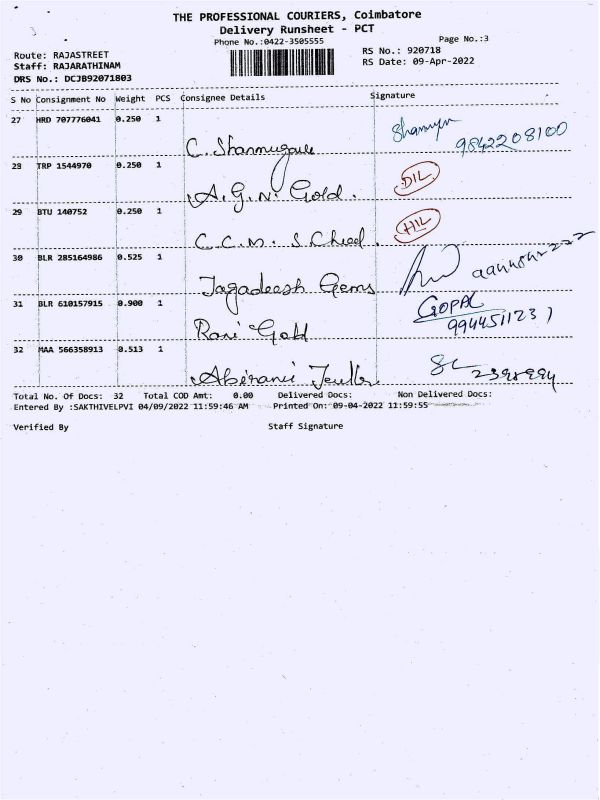 THE PROFESSIONAL COURIERS, Coimbatore
Delivery Runsheet - PCT
Phone No.:0422-3505555 Page No.:3
Route: RAJASTREET RS No.: 920718
Staff: RAJARATHINAM RS Date: 09-Apr-2022
DRS No.: DCJB92071803
S No Consignment No Weight PCS Consignee Details Signature
27 HRD 707776041 0.250 1
C. Shanmugam 9842208100
28 TRP 1544970 0.250 1
A.G.N. Gold. DIL
29 BTU 140752 0.250 1
C.C.M. S. HIL
30 BLR 285164986 0.525 1
Jagadeesh Gems
31 BLR 610157915 0.900 1 GOPAL
Rani Gold 9944511231
32 MAA 566358913 0.513 1
Abirami
Total No. Of Docs: 32 Total COD Amt: 0.00 Delivered Docs: Non Delivered Docs:
Entered By :SAKTHIVELPVI 04/09/2022 11:59:46 AM Printed On: 09-04-2022 11:59:55
Verified By Staff Signature